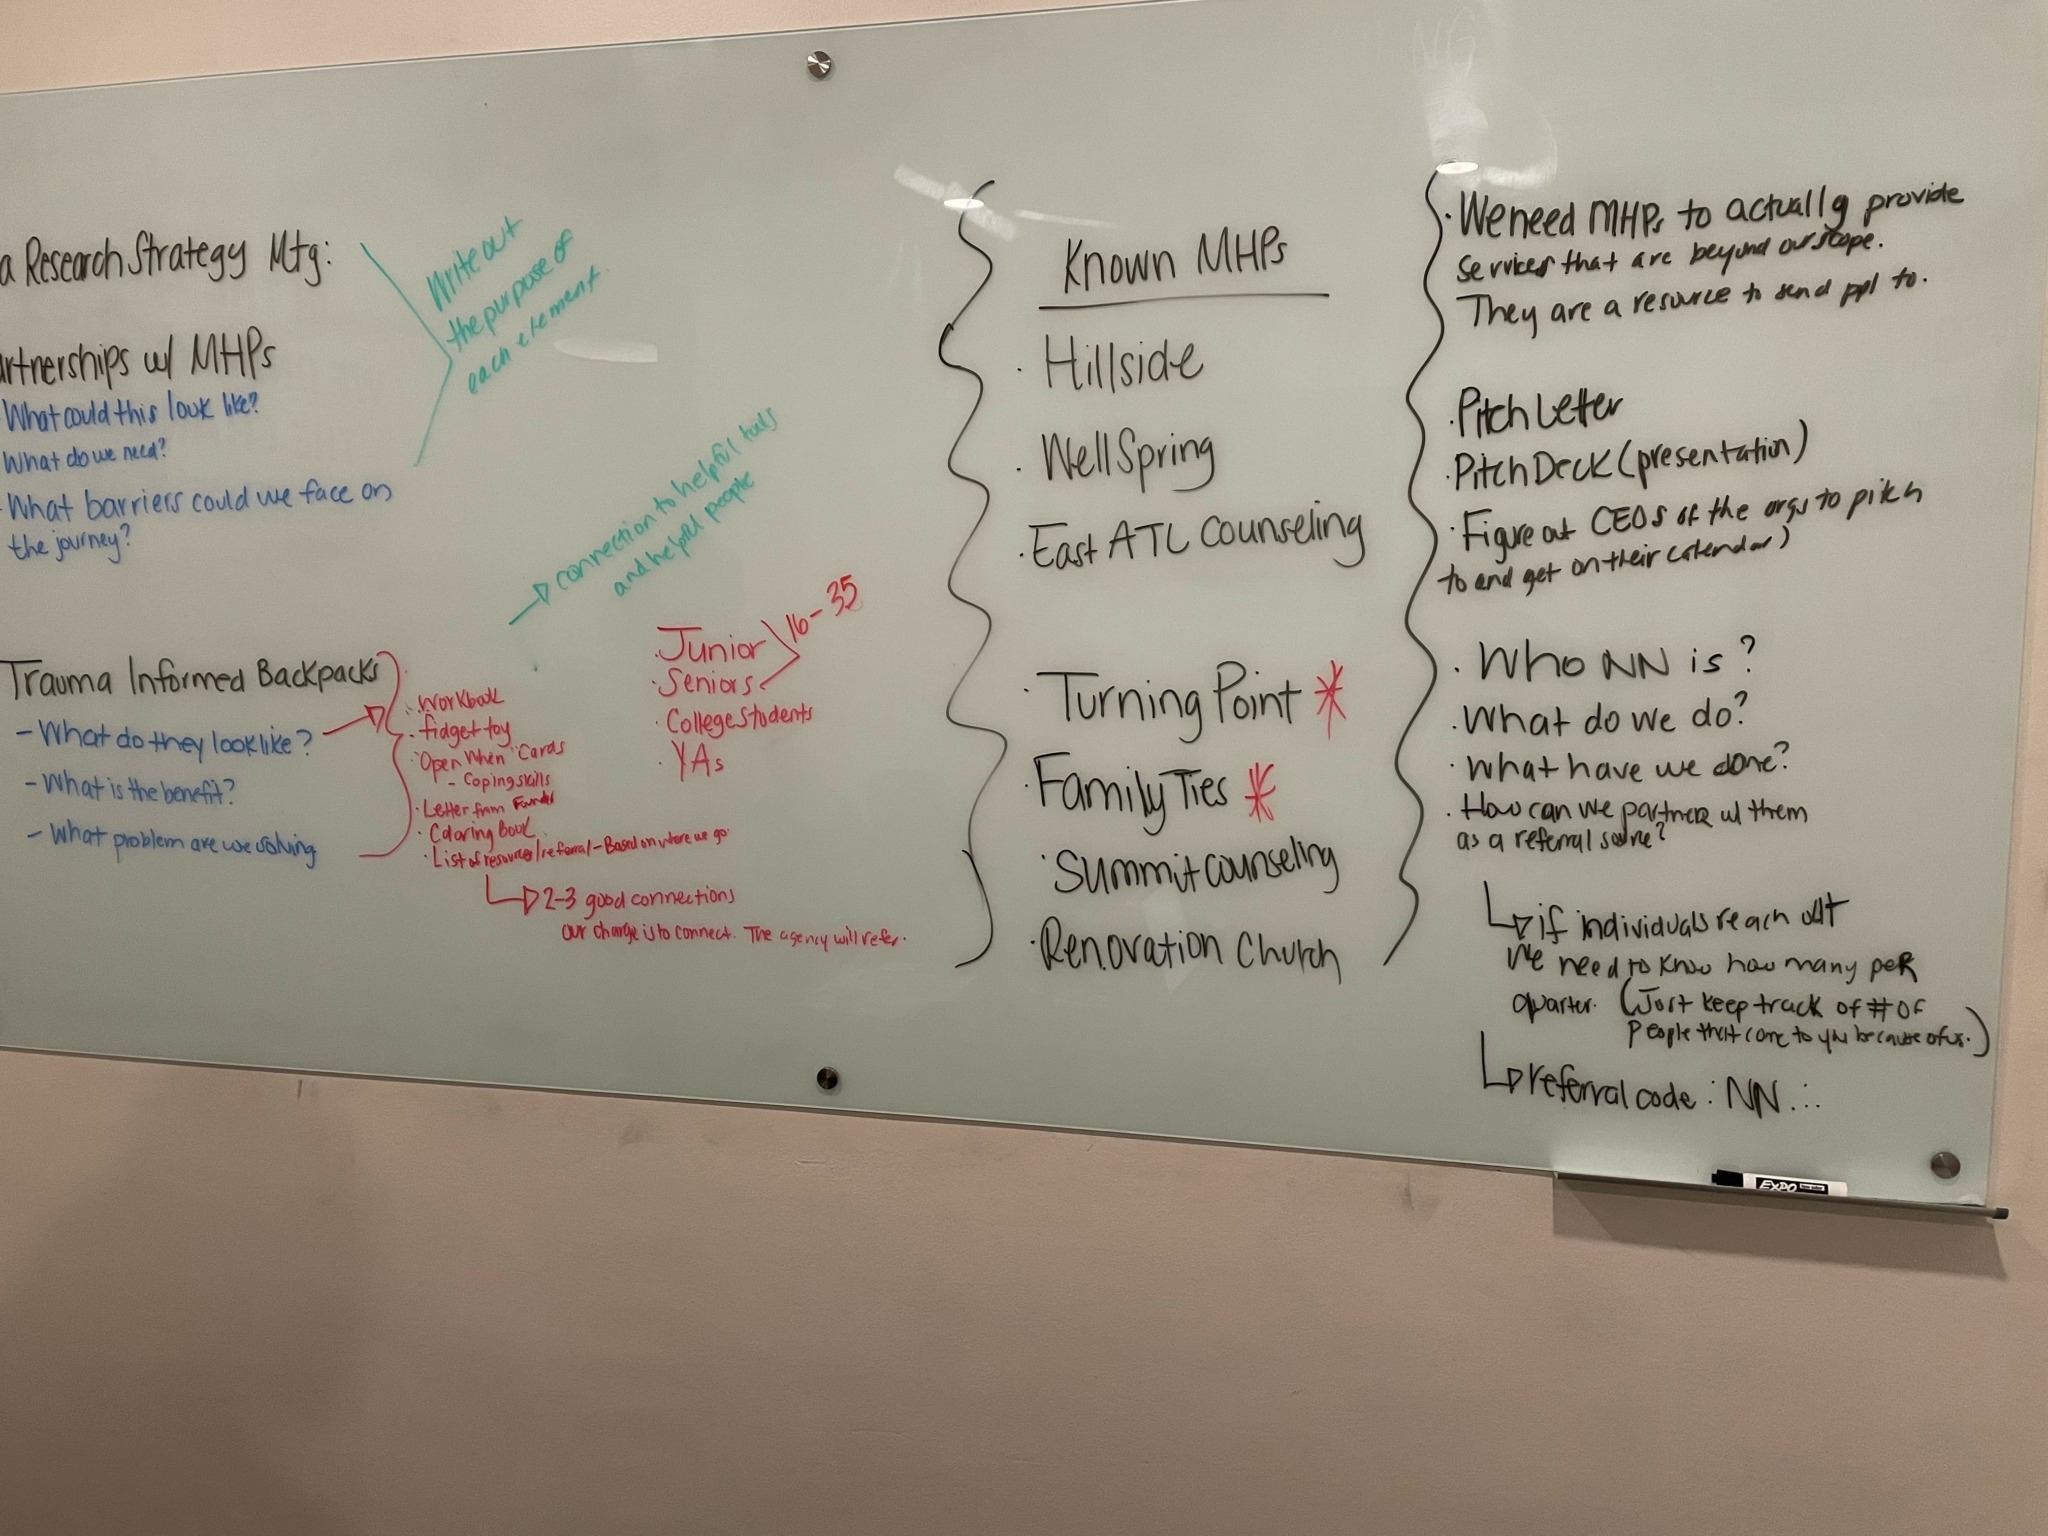 a Research Strategy Mtg:
artnerships w/ MHPs
What could this look like?
What do we need?
What barriers could we face on
the journey?
Write out
the purpose of
each element.
connection to helpful tools
and helpful people
Trauma Informed Backpacks
- What do they look like?
- What is the benefit?
- What problem are we solving
· Workbook
· fidget toy
· "Open When" Cards
- Coping skills
· Letter from Founder
· Coloring Book
· List of resources/referral - Based on where we go
2-3 good connections
our charge is to connect. The agency will refer.
· Junior
· Seniors
16-35
· College Students
· YAs
Known MHPs
· Hillside
· WellSpring
· East ATL Counseling
· Turning Point *
· Family Ties *
· Summit counseling
· Renovation Church
· We need MHPs to actually provide
services that are beyond our scope.
They are a resource to send ppl to.
· Pitch Letter
· Pitch Deck (presentation)
· Figure out CEOs of the orgs to pitch
to and get on their calendar)
· Who NN is?
· What do we do?
· What have we done?
· How can we partner w/ them
as a referral source?
if individuals reach out
we need to know how many per
quarter. (Just keep track of # of
people that come to you because of us.)
referral code: NN...
EXPO